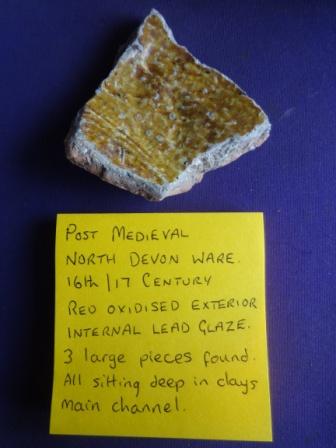 POST MEDIEVAL
NORTH DEVON WARE.
16th/17 CENTURY
RED OXIDISED EXTERIOR
INTERNAL LEAD GLAZE.
3 large pieces found.
All sitting deep in clays
main channel.